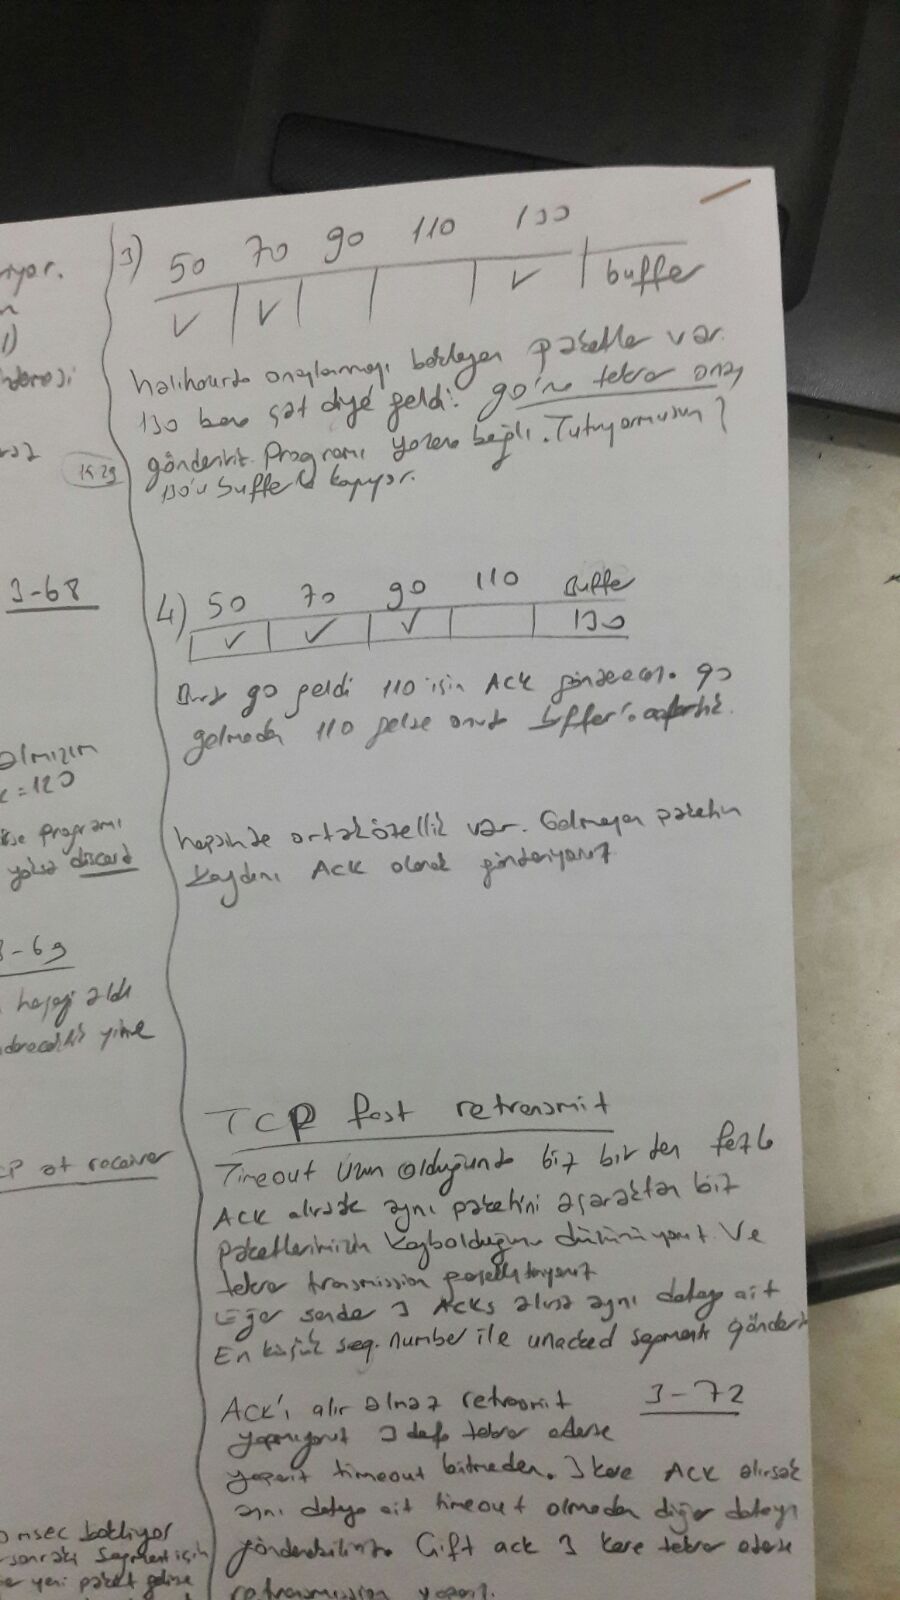 ıyor.
1)
15.29
3-68
k=120
ise programı
yoksa discard
3-69
hepsi aldı
yine
CP at receiver
msec bekliyor
sonraki segment için
yeni paket gelirse
3)
50 70 90 110 130
✓ ✓ ✓ buffer
halihazırda onaylanmayı bekleyen paketler var.
130 bana şat diye geldi. 90'na tekrar onay
göndeririz. Programı yazana bağlı. Tutuyormusun?
130'u buffer'a koyuyor.
4)
50 70 90 110 Buffer
✓ ✓ ✓ 130
Burda 90 geldi 110 için ACK gönderecez. 90
gelmeden 110 gelse onuda buffer'a
hepsinde ortak özellik var. Gelmeyen paketin
kaydını ACK olarak gönderiyoruz
TCP fast retransmit
Timeout uzun olduğunda biz birden fazla
ACK alırsak aynı paketin biz
paketlerimizin kaybolduğunu düşünüyoruz. Ve
tekrar transmission
Eğer sender 3 ACKs alırsa aynı dataya ait
En küçük seq. number ile unacked segmenti gönderir
ACK'ı alır almaz retransmit 3-72
yapmıyoruz 3 defa tekrar ederse
yaparız timeout bitmeden. 3 kere ACK alırsak
aynı dataya ait timeout olmadan diğer datayı
gönderebiliriz. Çift ack 3 kere tekrar ederse
retransmission yaparız.